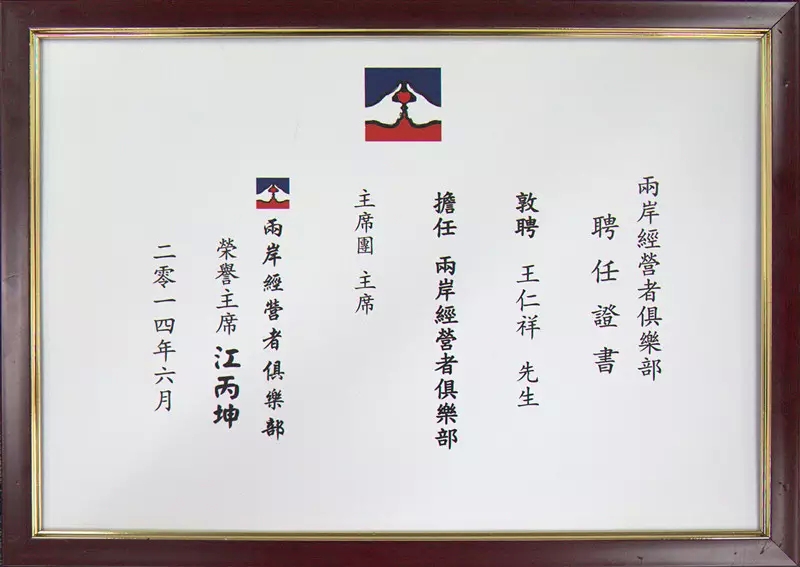 兩岸經營者俱樂部
聘任證書
敦聘 王仁祥 先生
擔任 兩岸經營者俱樂部
主席團 主席
兩岸經營者俱樂部
榮譽主席 江丙坤
二零一四年六月